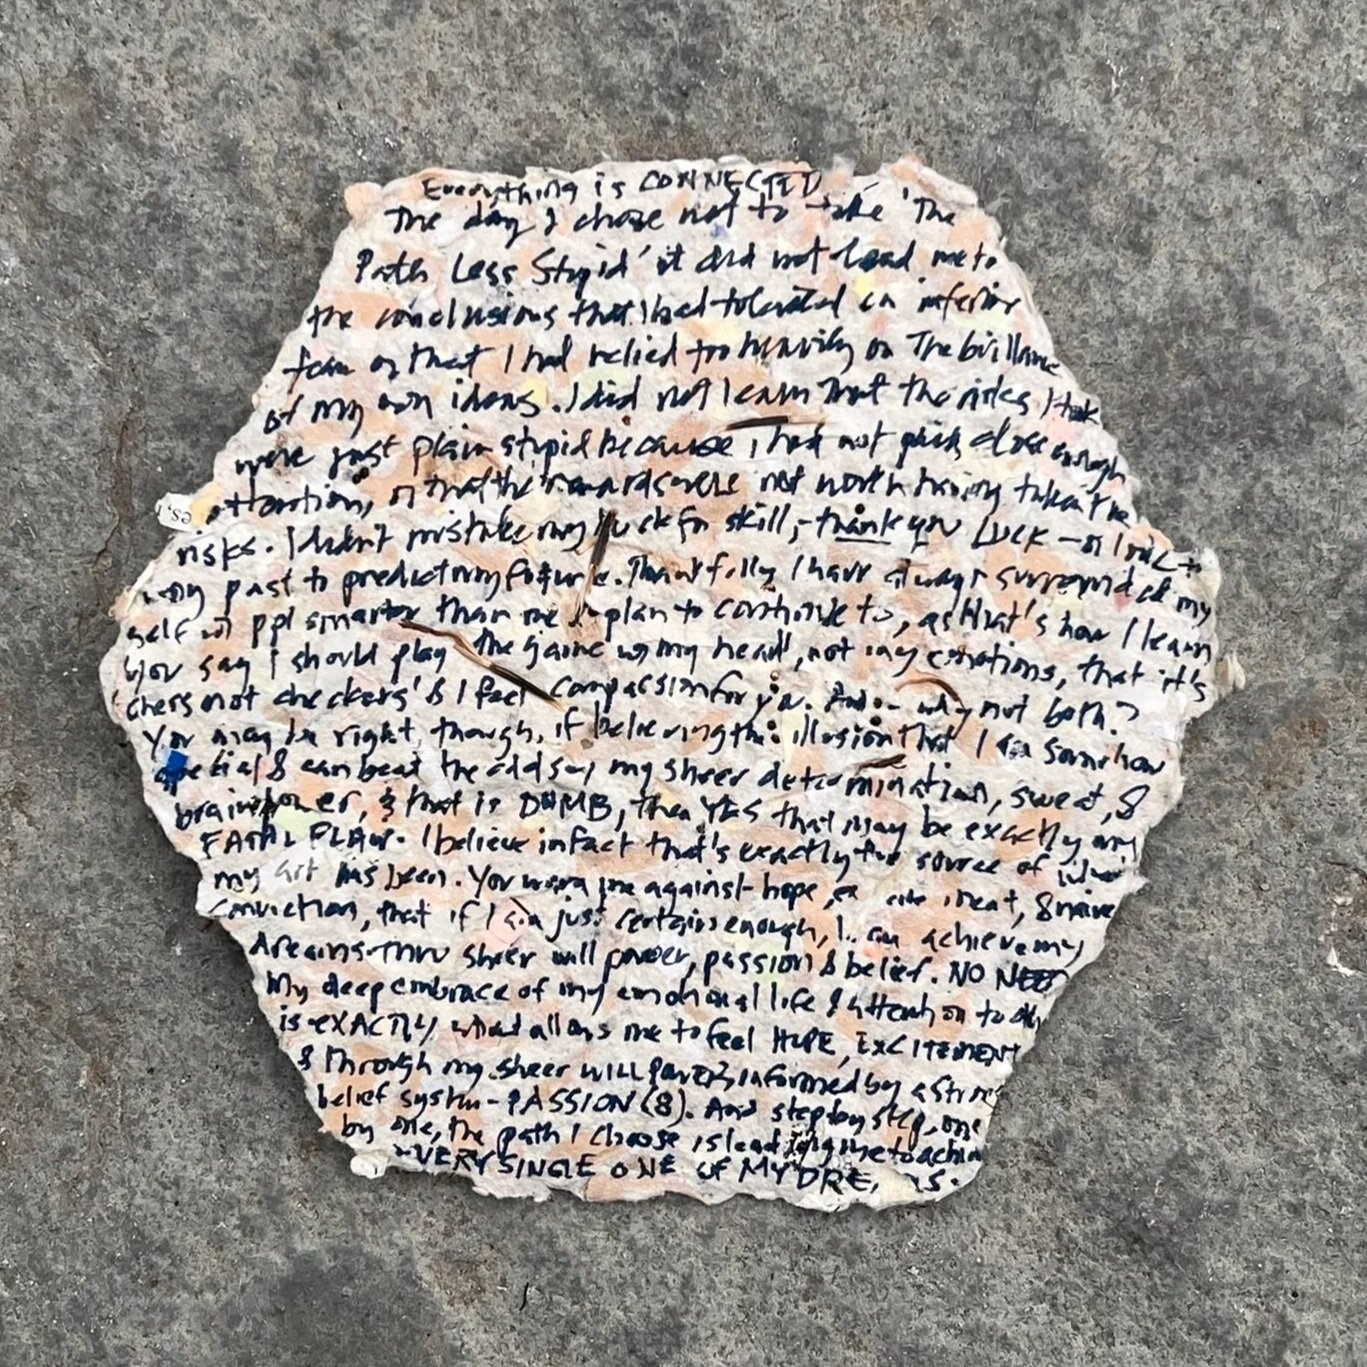 Everything is CONNECTED
The day I chose not to take 'The
Path Less Stupid' it did not lead me to
the conclusions that I had tolerated an inferior
team or that I had relied too heavily on The brilliance
of my own ideas. I did not learn that the risks I took
were just plain stupid because I had not paid close enough
attention, or that the rewards were not worth having taken the
risks. I didn't mistake my luck for skill, - thank you LUCK - or
my past to predict my future. Thankfully I have always surrounded my
self w ppl smarter than me & plan to continue to, as that's how I learn
You say I should play the game w my head, not my emotions, that it's
chess not checkers' & I feel compassion for you. And - why not both?
You may be right, though, if believing the illusion that I am somehow
special & can beat the odds w my sheer determination, sweat, &
brainpower, & that is DUMB, then YES that may be exactly my
FATAL FLAW. I believe in fact that's exactly the source of
my art has been. You warn me against hope, excitement, & naive
conviction, that if I am just certain enough, I can achieve my
dreams thru sheer will power, passion & belief. NO NEED
My deep embrace of my emotional life & attention to
is EXACTLY what allows me to feel HOPE, EXCITEMENT
& through my sheer WILL POWER, informed by a strong
belief system - PASSION (8). And step by step, one
by one, the path I choose is leading me to achieve
EVERY SINGLE ONE OF MY DREAMS.